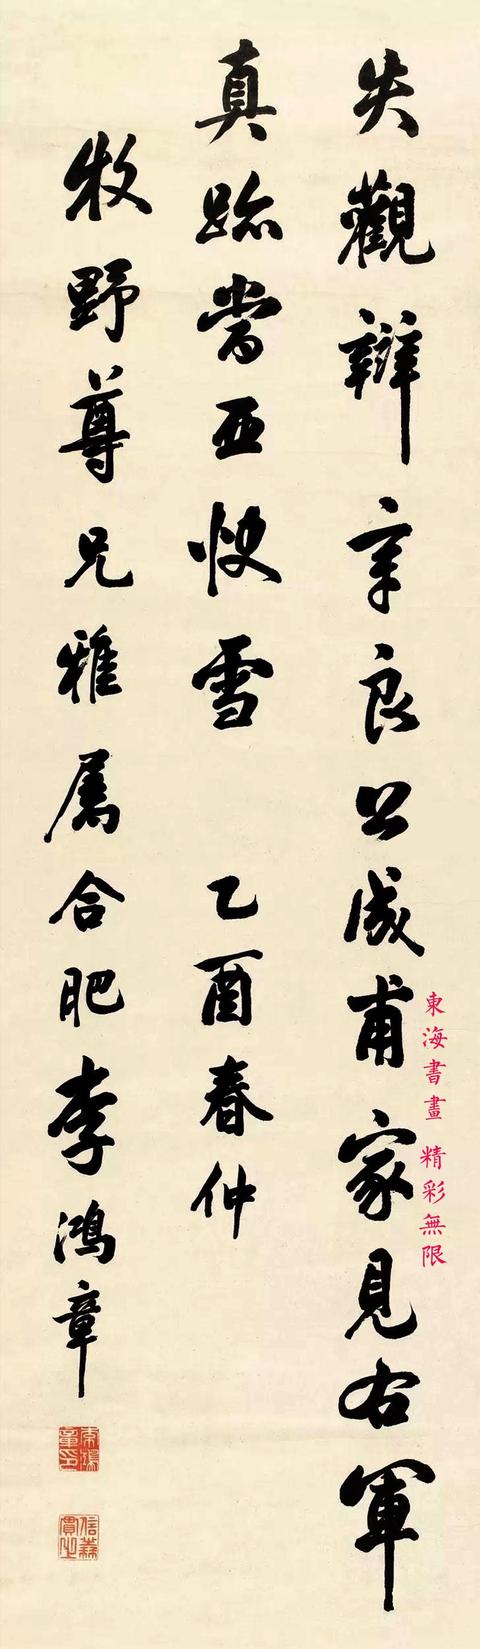 失觀辯辛良公成甫家見右軍
真跡當亞快雪 乙酉春仲
牧野尊兄雅屬合肥李鴻章
東海書畫 精彩無限